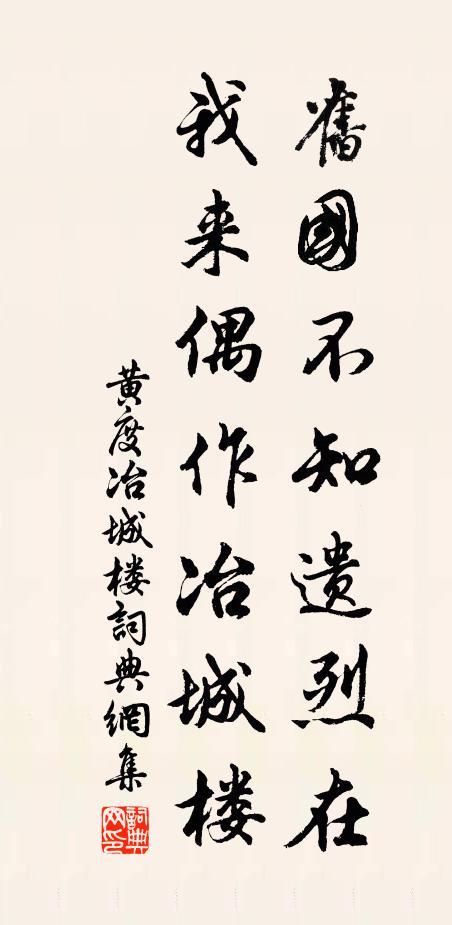 舊國不知遺烈在
我来偶作冶城楼
黄度冶城楼詞典網集
詞典網印